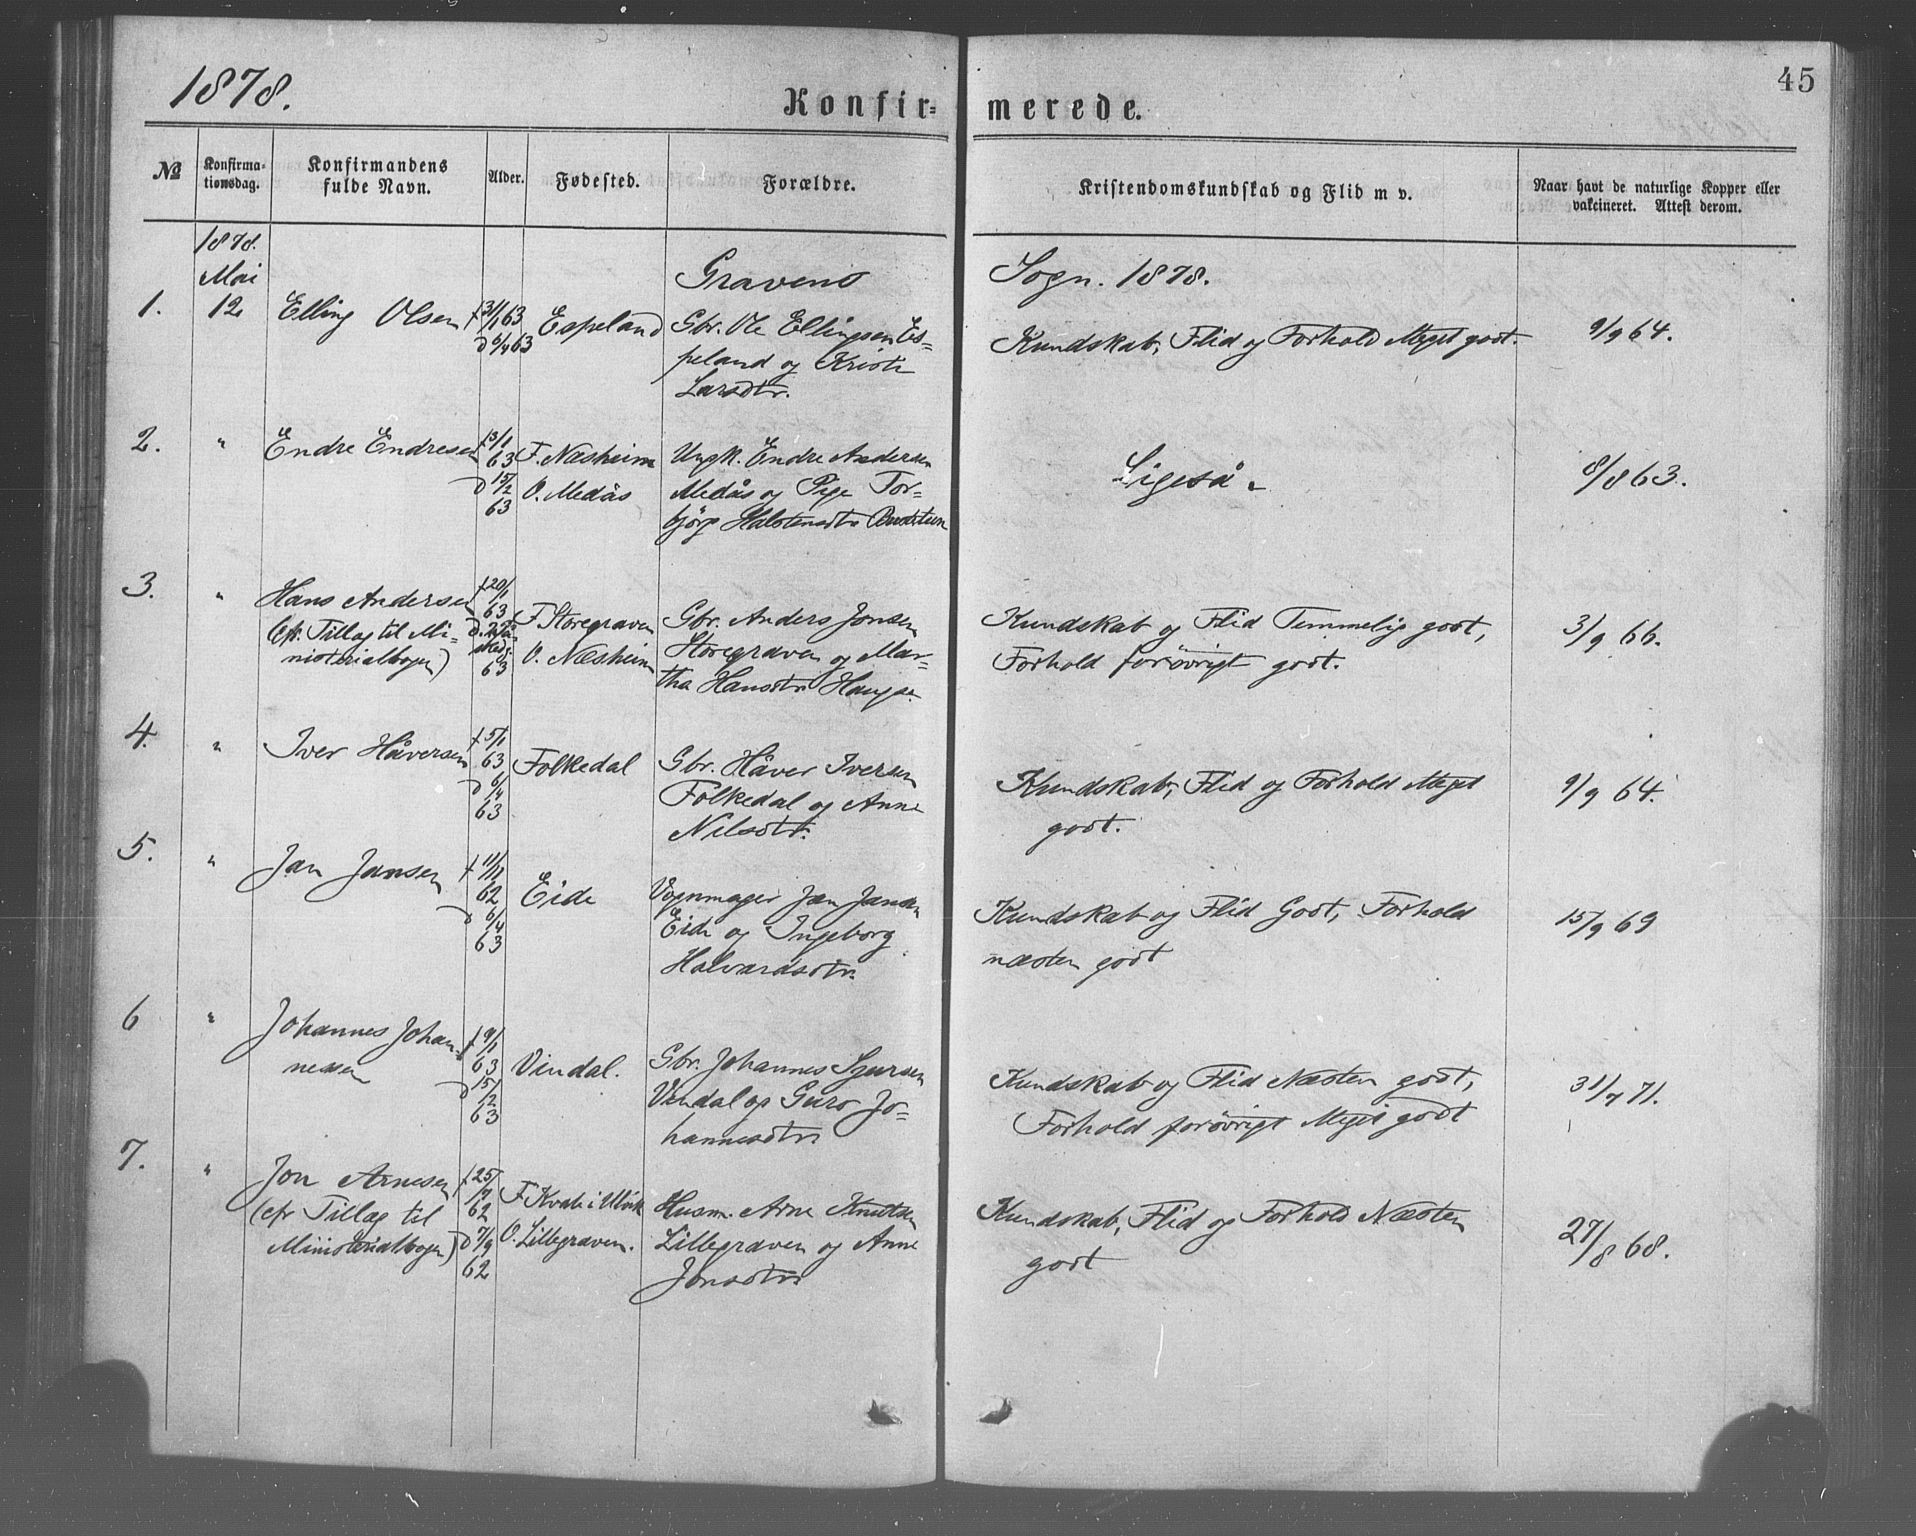 1878.
45
Konfir-
merede.
№
Konfirma-
tionsdag.
Konfirmandens
fulde Navn.
Alder.
Fødested.
Forældre.
Kristendomskundskab og Flid m v.
Naar havt de naturlige Kopper eller
vakcineret. Attest derom.
1878.
Mai
Gravens
Sogn. 1878.
1.
12
Elling Olsen
f 31/1 63
d 6/4 63
Espeland
Gbr. Ole Ellingsen Es-
peland og Kristi
Larsdtr.
Kundskab, Flid og Forhold Meget godt.
9/9 64.
2.
"
Endre Endresen
f 3/1
63
d 15/2
63
F. Næsheim
O. Medås
Ungk. Endre Andersen
Medås og Pige Tor-
björg Halstensdtr
Ligeså.
8/8 63.
3.
"
Hans Andersen
(cfr. Tillæg til Mi-
nisterialbogen)
f 20/1
63
63
F. Storegraven
O. Næsheim
Gbr. Anders Jonsen
Storegraven og Mar-
tha Hansdtr. Hauge.
Kundskab og Flid Temmelig godt,
Forhold forøvrigt godt.
3/9 66.
4.
"
Iver Håversen
f 5/1
63
d 6/4
63
Folkedal
Gbr. Håver Iversen
Folkedal og Anne
Nilsdtr.
Kundskab, Flid og Forhold Meget
godt.
9/9 64.
5.
"
Jan Jansen
f 11/11
62
d 6/4
63
Eide
Vognmager Jan Jansen
Eide og Ingeborg
Halvardsdtr.
Kundskab og Flid Godt, Forhold
næsten godt
15/9 69
6
"
Johannes Johan-
nessen
f 9/1
63
d 15/2
63
Vindal.
Gbr. Johannes Sjursen
Vindal og Guro Jo-
hannesdtr.
Kundskab og Flid Næsten godt,
Forhold forøvrigt Meget godt
31/7 71.
7.
"
Jon Arnesen
(cfr Tillæg til
Ministerialbogen)
f 25/7
62
d 7/9
62
F. Kvale i Ulvik
O. Lillegraven.
Husm. Arne Knutsen
Lillegraven og Anne
Jonsdtr.
Kundskab, Flid og Forhold Næsten
godt
27/8 68.